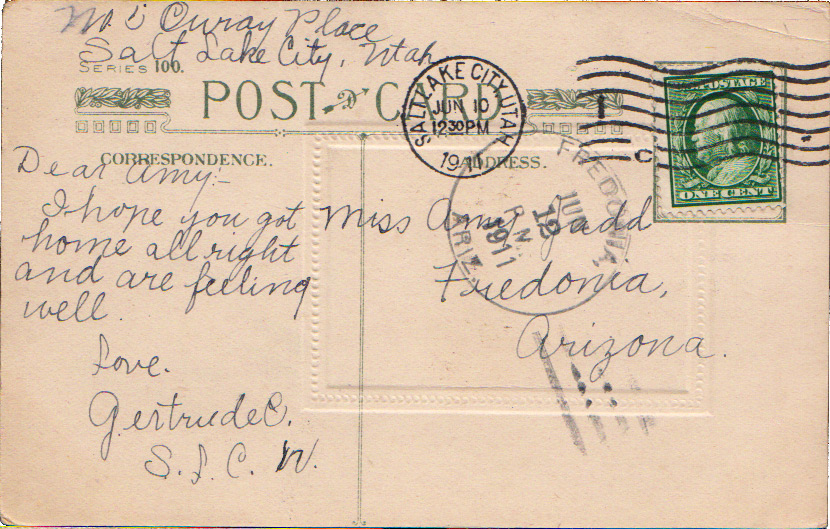 No. 2 Ouray Place
Salt Lake City, Utah
SERIES 100.
POST CARD
CORRESPONDENCE.
ADDRESS.
SALT LAKE CITY, UTAH
JUN 10
1230 PM
1911
C
ONE CENT
FREDONIA,
JUN
12
P.M.
1911
ARIZ.
Dear Amy:-
I hope you got
home all right
and are feeling
well.
Love.
Gertrude C.
S. L. C. W.
Miss Amy Judd
Fredonia,
Arizona.